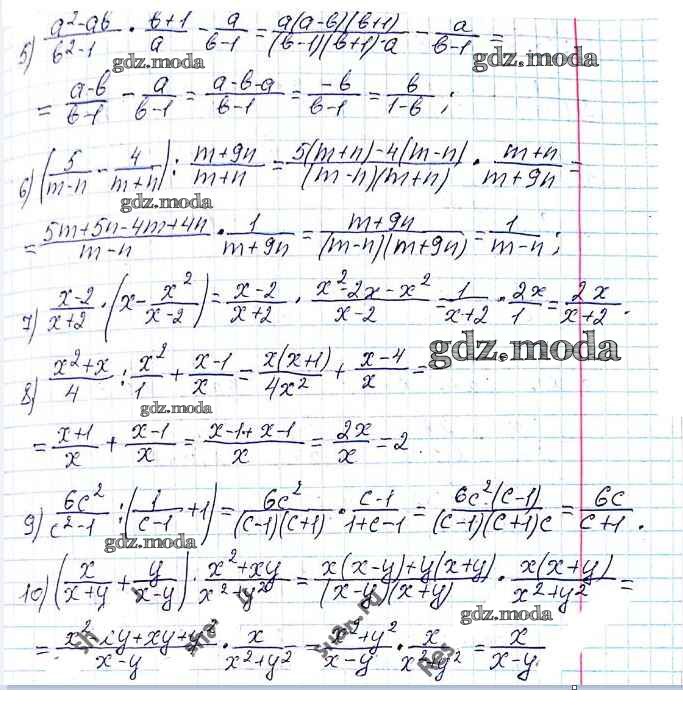 5) (a²-ab)/(b²-1) · (b+1)/a - a/(b-1) = a(a-b)(b+1)/((b-1)(b+1)·a) - a/(b-1) =
gdz.moda gdz.moda
= (a-b)/(b-1) - a/(b-1) = (a-b-a)/(b-1) = -b/(b-1) = b/(1-b) ;
6) (5/(m-n) - 4/(m+n)) : (m+9n)/(m+n) = (5(m+n)-4(m-n))/((m-n)(m+n)) · (m+n)/(m+9n) =
gdz.moda
= (5m+5n-4m+4n)/(m-n) · 1/(m+9n) = (m+9n)/((m-n)(m+9n)) = 1/(m-n) ;
7) (x-2)/(x+2) · (x - x²/(x-2)) = (x-2)/(x+2) · (x²-2x-x²)/(x-2) = 1/(x+2) · 2x/1 = 2x/(x+2) .
gdz.moda
8) (x²+x)/4 : x²/1 + (x-1)/x = x(x+1)/4x² + (x-4)/x =
gdz.moda
= (x+1)/x + (x-1)/x = (x-1+x-1)/x = 2x/x = 2 .
9) 6c²/(c²-1) : (1/(c-1) + 1) = 6c²/((c-1)(c+1)) · (c-1)/(1+c-1) = 6c²(c-1)/((c-1)(c+1)c) = 6c/(c+1) .
gdz.moda
10) (x/(x+y) + y/(x-y)) · (x²+xy)/(x²+y²) = (x(x-y)+y(x+y))/((x-y)(x+y)) · x(x+y)/(x²+y²) =
gdz.moda
= (x²-xy+xy+y²)/(x-y) · x/(x²+y²) = (x²+y²)/(x-y) · x/(x²+y²) = x/(x-y)